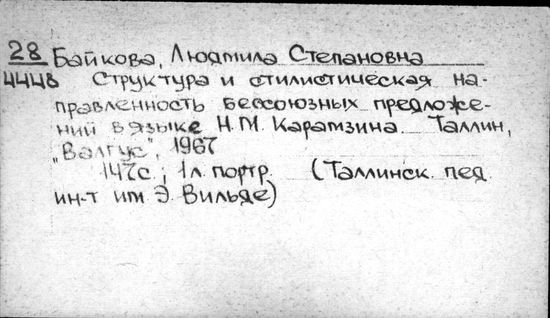 28 Байкова, Людмила Степановна
4448 Структура и стилистическая на-
правленность бессоюзных предложе-
ний в языке Н. М. Карамзина. Таллин,
„Валгус", 1967
147с., 1л. портр. (Таллинск. пед.
ин-т им Э. Вильде)